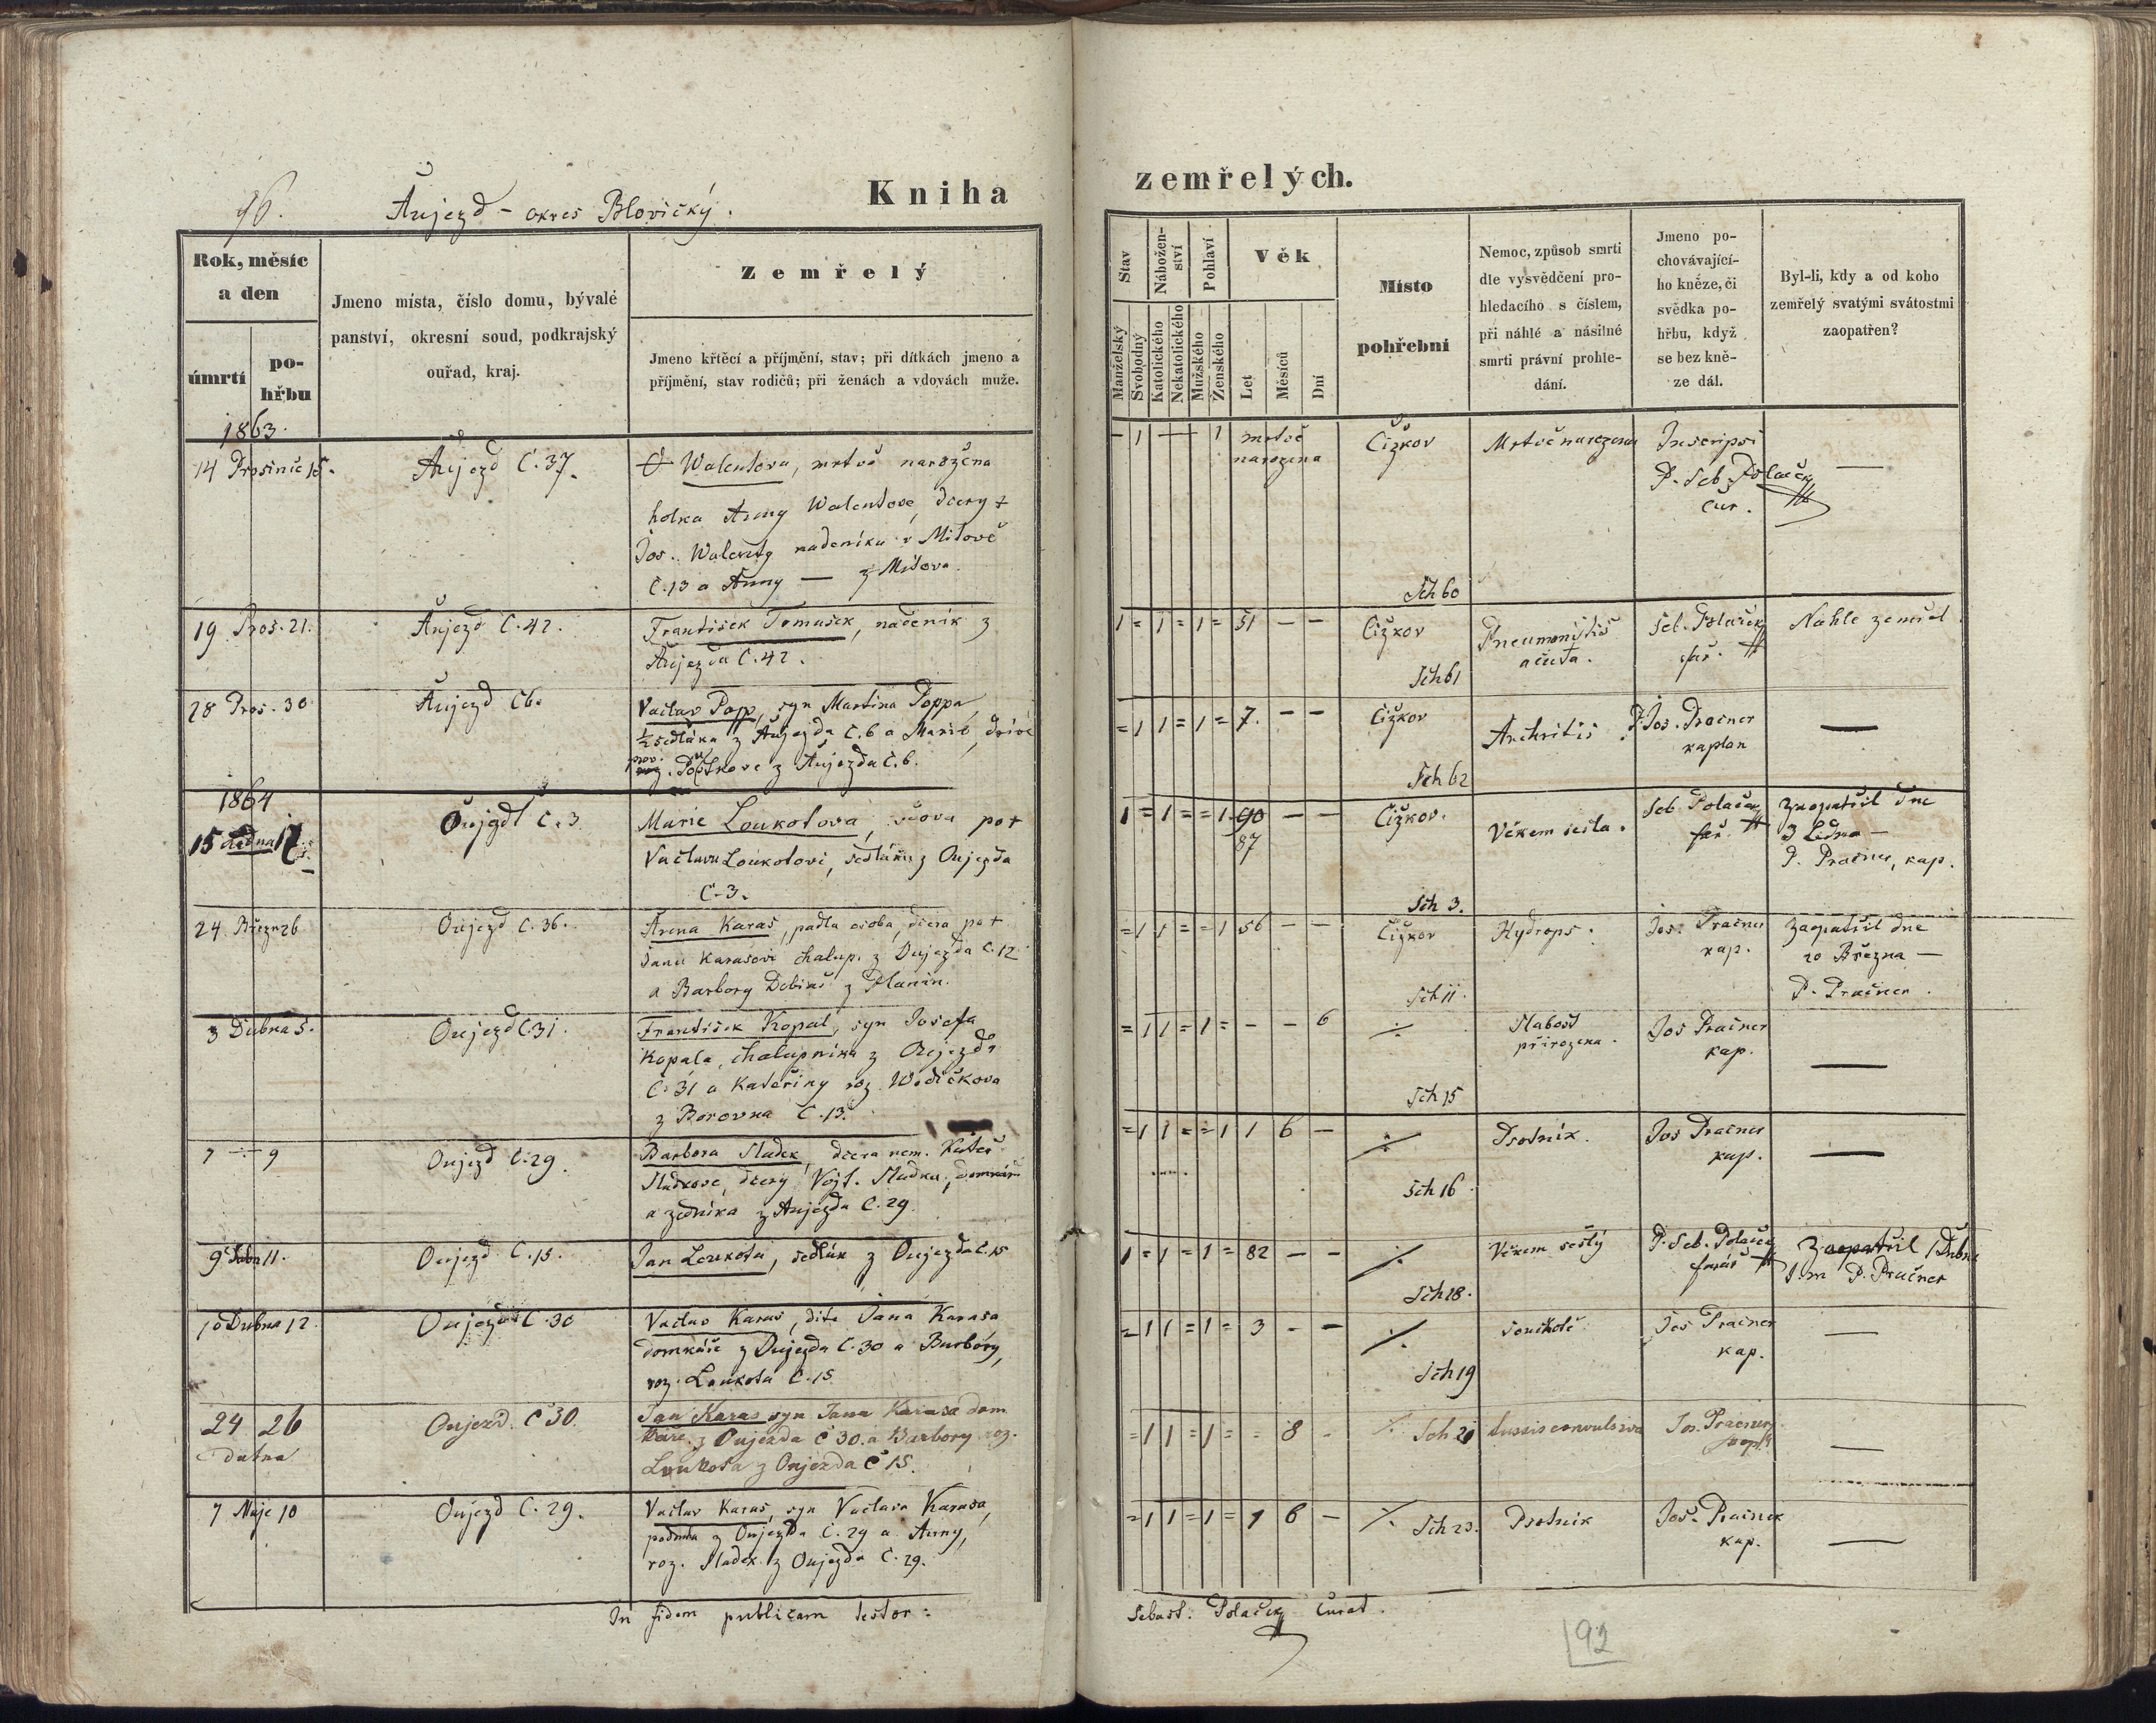 96.
Aujezd - okres Blovický.
Kniha
Rok, měsíc
a den
úmrtí
po-
hřbu
Jmeno místa, číslo domu, bývalé
panství, okresní soud, podkrajský
ouřad, kraj.
Zemřelý
Jmeno křtěcí a příjmění, stav; při dítkách jmeno a
příjmění, stav rodičů; při ženách a vdovách muže.
1863.
14 Prosince 15.
Aujezd Č. 37.
Walentova, mrtvě narozena
holka Anny Walentove, dcery †
Jos. Walenty nadenika v Mitově
Č. 13 a Anny — z Mitova.
19 Pros. 21.
Aujezd Č. 42.
František Tomašek, nadenik z
Aujezda Č. 42.
28 Pros. 30
Aujezd Č 6.
Vaclav Popp, syn Martina Poppa,
½ sedláka z Aujezda Č. 6 a Marie, dříve
z Aujezda Č. 6.
1864
15 Ledna 17
Oujezd Č. 3.
Marie Loukotova, vdova po †
Vaclavu Loukotovi, sedláku z Oujezda
Č. 3.
24 Března 26
Oujezd Č. 36.
Anna Karas, padla osoba, dcera po †
Janu Karasovi chalup. z Oujezda Č. 12
a Barbory Debius z Planin.
3 Dubna 5.
Oujezd Č. 31.
František Kopal, syn Josefa
Kopala, chalupnika z Oujezda
Č. 31 a Kateřiny roz. Wodičkova
z Borovna Č. 13.
7 -:- 9
Oujezd Č. 29.
Barbora Sladek, dcera nem. Kateř.
Sladkove, dcery Vojt. Sladka, domkáře
a zedníka z Aujezda Č. 29.
9 Dubn 11.
Oujezd Č. 15.
Jan Loukota, sedlák z Oujezda Č. 15
10 Dubna 12.
Oujezd Č. 30
Vaclav Karas, dite Jana Karasa
domkáře z Oujezda Č. 30 a Barbory,
roz. Loukota Č. 15
24 26
Dubna
Oujezd. Č 30.
Jan Karas syn Jana Karasa dom
káře z Oujezda Č 30. a Barbory roz.
Loukota z Oujezda Č 15.
7 Maje 10
Oujezd Č. 29.
Vaclav Karas, syn Vaclava Karasa,
podruha z Oujezda Č. 29 a Anny,
roz. Sladek z Oujezda Č. 29.
In fidem publicam testor:
zemřelých.
Stav
Nábožen-
ství
Pohlaví
Věk
Manželský
Svobodný
Katolického
Nekatolického
Mužského
Ženského
Let
Měsíců
Dní
Místo
pohřební
Nemoc, způsob smrti
dle vysvědčení pro-
hledacího s číslem,
při náhlé a násilné
smrti právní prohle-
dání.
Jmeno po-
chovávající-
ho kněze, či
svědka po-
hřbu, když
se bez kně-
ze dál.
Byl-li, kdy a od koho
zemřelý svatými svátostmi
zaopatřen?
— 1 — 1 mrtvě
narozena
Čižkov
Mrtvě narozena
Inscripsi
P. Seb. Polaček
cur.
—
Sch 60
1 = 1 = 1 = 51 — —
Čižkov
Pneumonitis
acuta.
Seb. Polaček
far.
Nahle zemřel.
Sch 61
= 1 1 = 1 = 7. — —
Čižkov
Arthritis.
P. Jos. Pračner
kaplan
—
Sch 62
1 = 1 = = 1 90 — —
87
Čižkov.
Věkem sešla.
Seb. Polaček
far.
Zaopatřil dne
3 Ledna —
P. Pračner, kap.
Sch 3.
= 1 1 = = 1 56 — —
Čižkov
Hydrops.
Jos. Pračner
kap.
Zaopatřil dne
20 Března —
P. Pračner.
Sch 11.
= 1 1 = 1 = - - 6
-/-
Slabost
přirozena.
Jos Pračner
kap.
—
Sch 15
= 1 1 = = 1 1 6 —
-/-
Psotnik.
Jos Pračner
kap.
—
Sch 16
1 = 1 = 1 = 82 — —
-/-
Věkem sešlý
P. Seb. Polaček
farář
Zaopatřil 1 Dubna
P. Pračner
Sch 18.
= 1 1 = 1 = 3 - -
-/-
Souchotě
Jos Pračner
kap.
—
Sch 19
= 1 1 = 1 = = 8 -
-/-
Sch 21
tussis convulsiva
Jos. Pračner
kapl.
—
= 1 1 = 1 = 1 6 —
-/-
Sch 23.
Psotnik
Jos. Pračner
kap.
—
Sebast. Polaček curat.
92